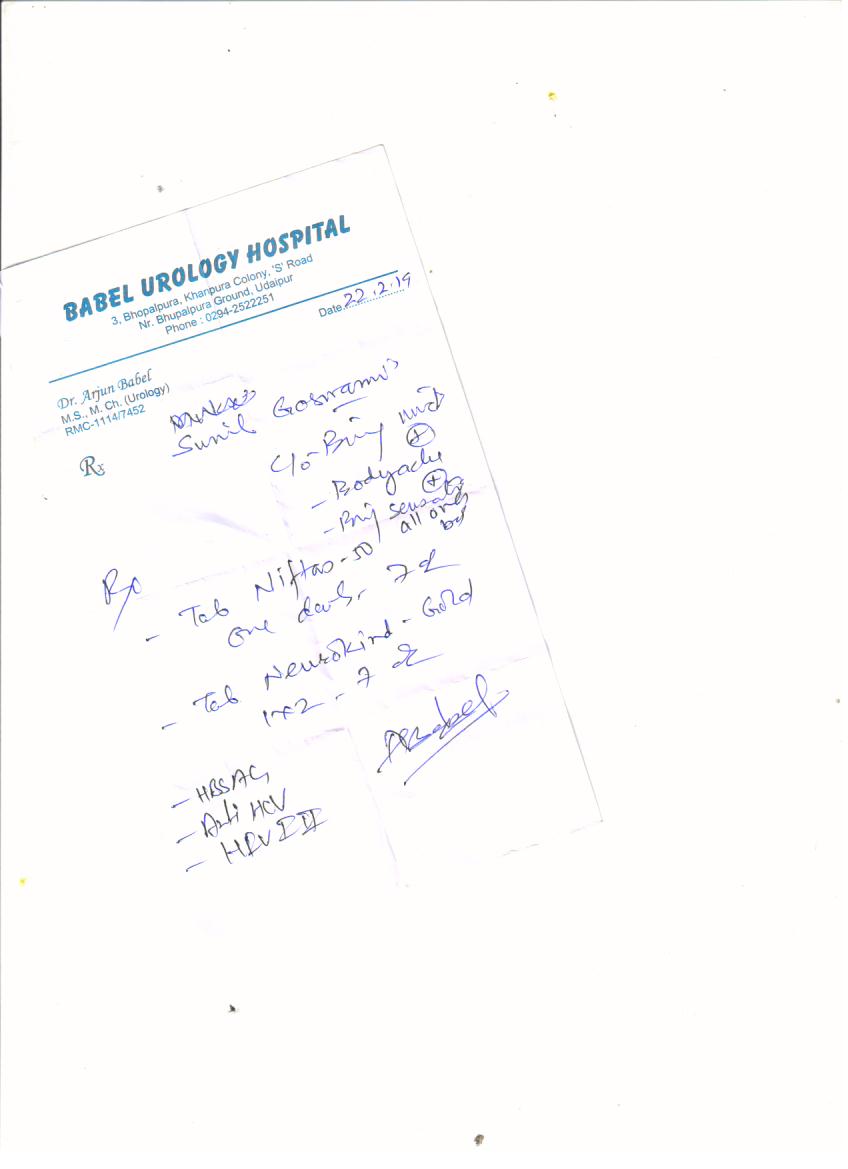 BABEL UROLOGY HOSPITAL
3, Bhopalpura, Khanpura Colony, 'S' Road
Nr. Bhupalpura Ground, Udaipur
Phone : 0294-2522251
Date 22.2.19
Dr. Arjun Babel
M.S., M. Ch. (Urology)
RMC-1114/7452
Rx
Sunil Goswami
C/o
- Bodyache
-
all over
Rx
- Tab Niftas-50
one 7 d
- Tab Neurokind-Gold
1x2 - 7 d
ABabel
- HBSAG
- Anti HCV
- HIV I II